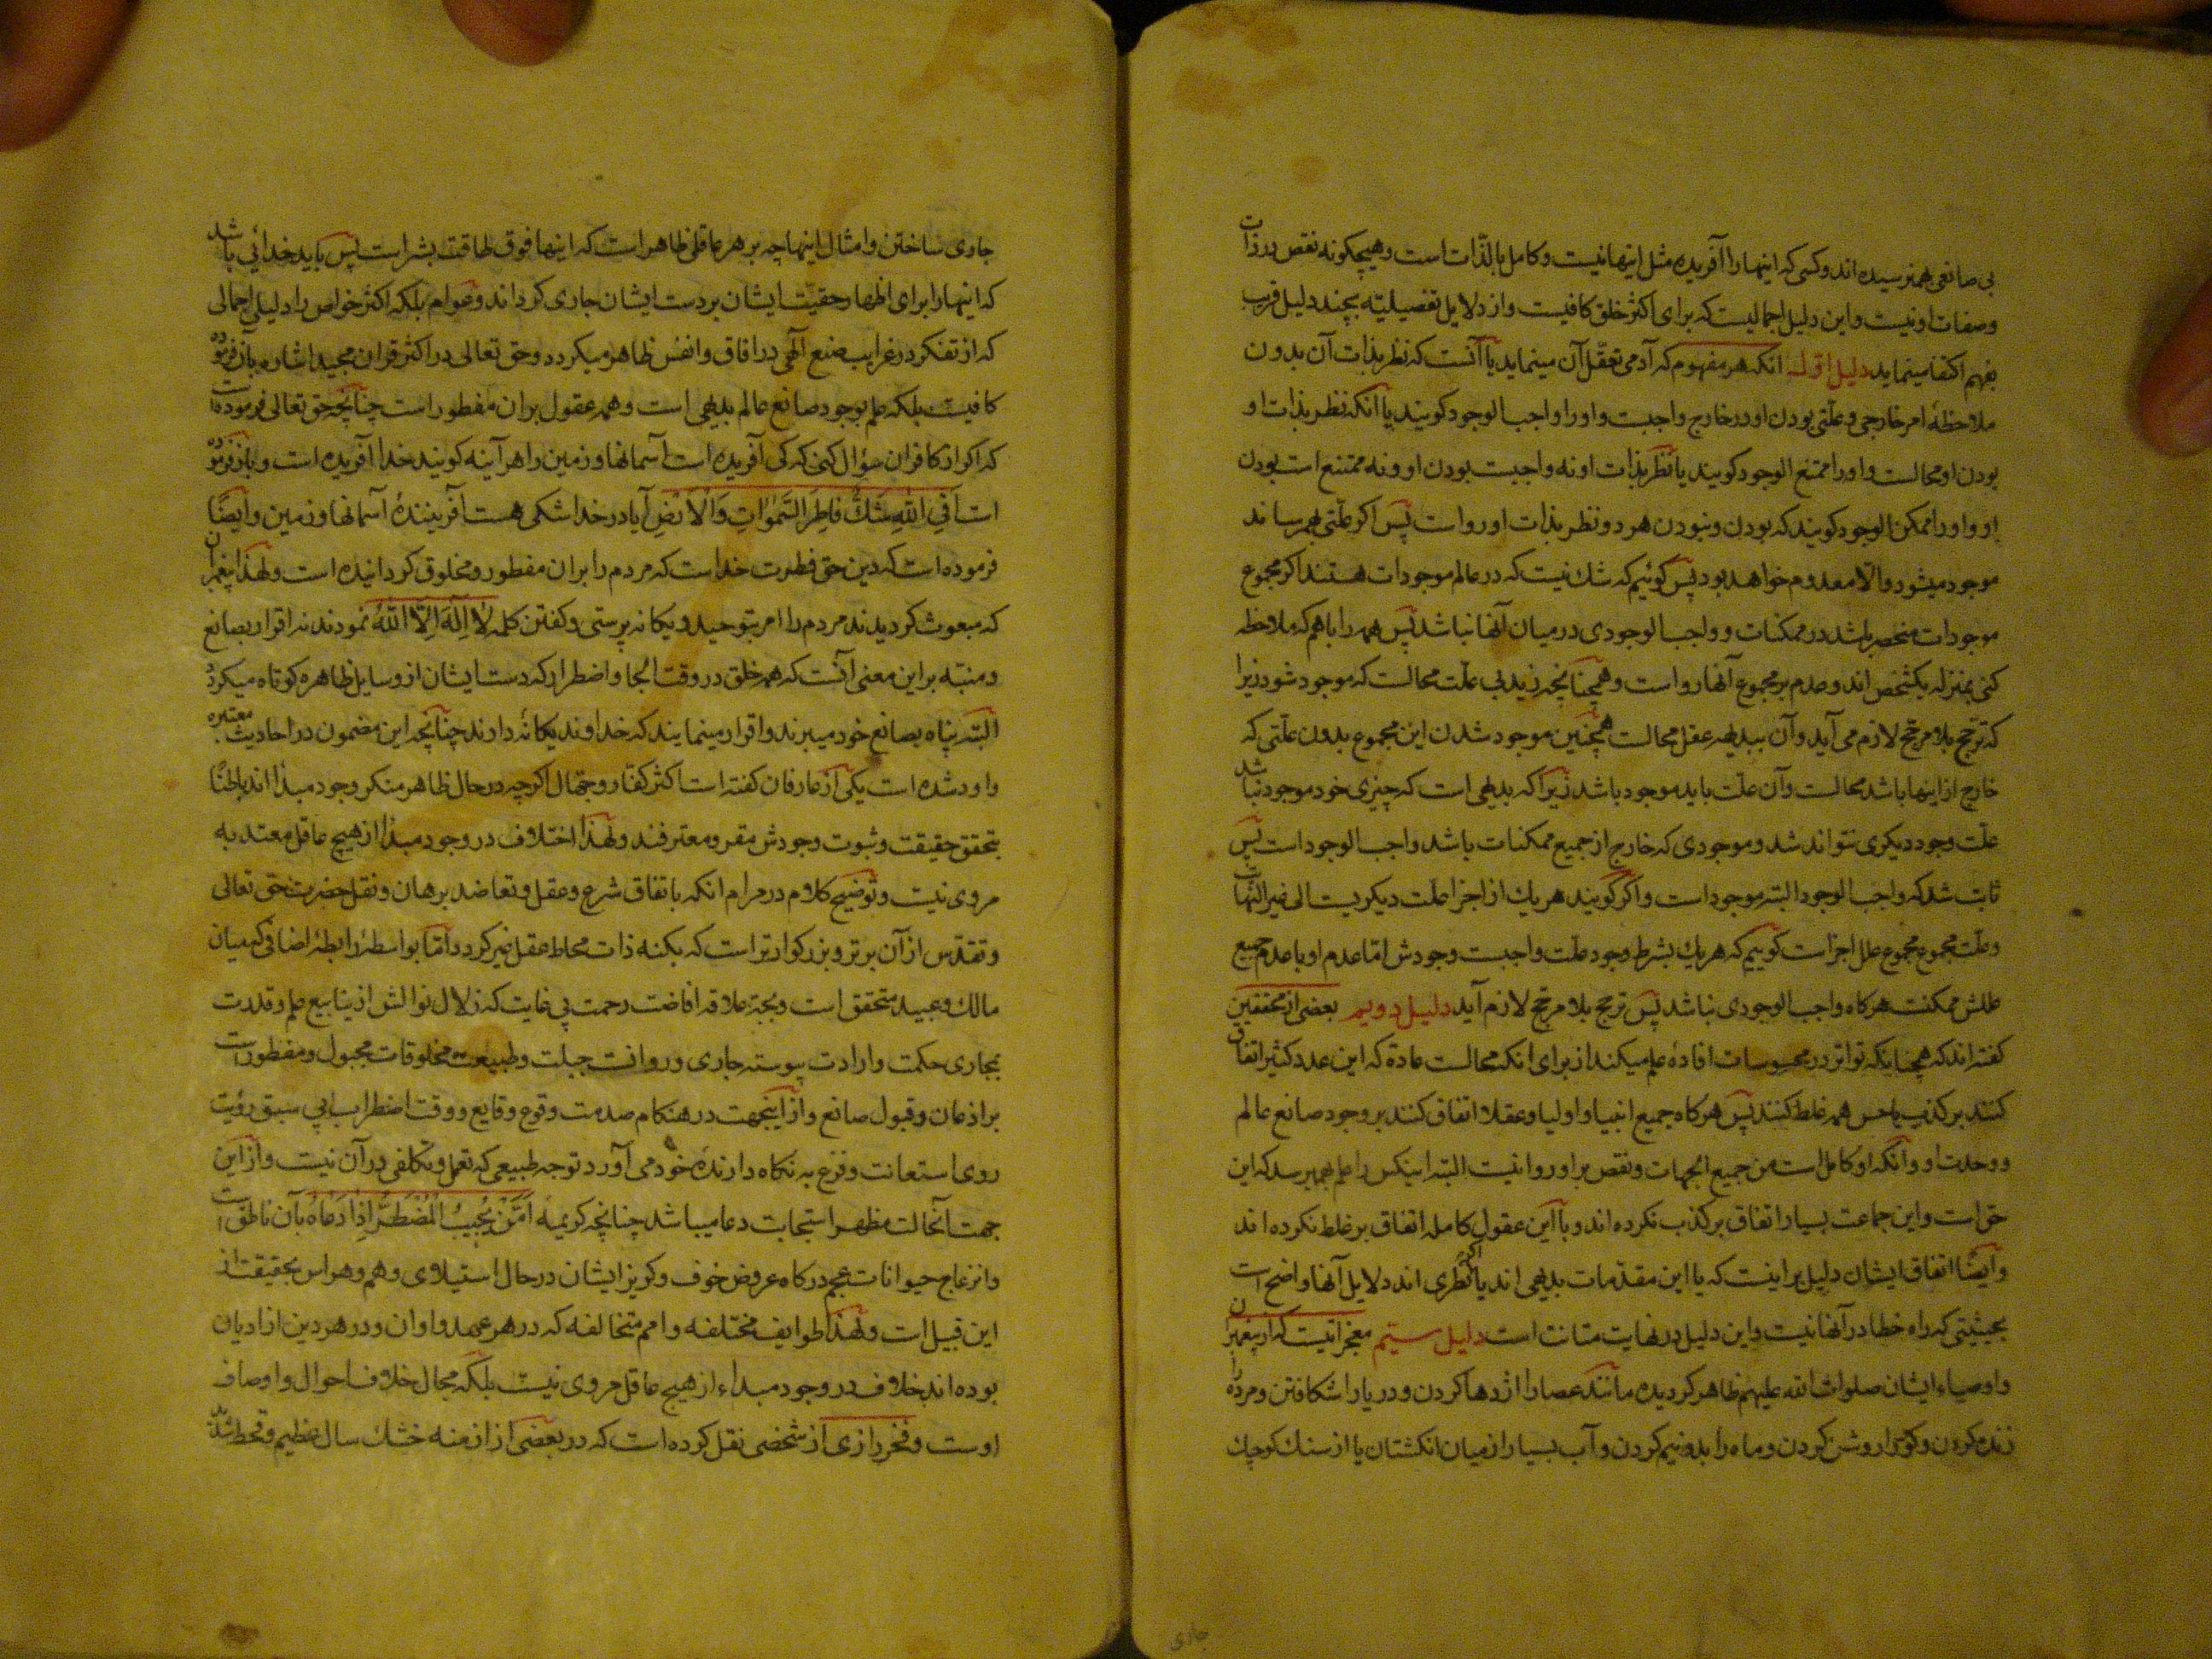 بی صانعی بهم نرسیده اند و کسی که اینها را آفریده مثل اینها نیست و کامل بالذّات است و هیچگونه نقص در ذات
و صفات او نیست و این دلیل اجمالیست که برای اکثر خلق کافیست و از دلایل تفصیلیّه بچند دلیل قریب
بفهم اکتفا مینماید دلیل اوّل انکه هر مفهوم که آدمی تعقّل آن مینماید یا آنست که نظر بذات آن بدون
ملاحظهٔ امر خارجی و علّتی بودن او در خارج واجبست و او را واجب الوجود کویند یا انکه نظر بذات او
بودن او محالست و او را ممتنع الوجود کویند یا نظر بذات او نه واجبست بودن او و نه ممتنع است بودن
او و او را ممکن الوجود کویند که بودن و نبودن هر دو نظر بذات او رواست پس اکر علّتی بهم رساند
موجود میشود و الّا معدوم خواهد بود پس کوئیم که شك نیست که در عالم موجودات هستند اکر مجموع
موجودات منحصر باشد در ممکنات و واجب الوجودی در میان آنها نباشد پس همه را با هم که ملاحظه
کنی بمنزله یکشخص اند و عدم بر مجموع آنها رواست و همچنانچه زید بی علّت محالست که موجود شود زیرا
که ترجیح بلا مرجّح لازم می آید و آن ببدیهه عقل محالست همچنین موجود شدن این مجموع بدون علّتی که
خارج از اینها باشد محالست و آن علّت باید موجود باشد زیرا که بدیهی است که چیزی خود موجود نباشد
علّت وجود دیکری نتواند شد و موجودی که خارج از جمیع ممکنات باشد واجب الوجود است پس
ثابت شد که واجب الوجود البته موجود است و اکر کویند هر یك از اجزا علّت دیکریست الی غیر النّهایت
و علّت مجموع مجموع علل اجزاست کوییم که هر یك بشرط وجود علّت واجبست وجودش امّا عدم او با عدم جمیع
عللش ممکنست هرکاه واجب الوجودی نباشد پس ترجیح بلا مرجّح لازم آید دلیل دویم بعضی از محققین
کفته اند که همچنانکه تواتر در محسوسات افادهٔ علم میکند از برای انکه محالست عادة که این عدد کثیر اتفاق
کنند بر کذب یا حس همه غلط کند پس هرکاه جمیع انبیا و اولیا و عقلا اتفاق کنند بر وجود صانع عالم
و وحدت او و آنکه او کامل است من جمیع الجهات و نقص بر او روا نیست البته اینکس را علم بهم میرسد که این
حق است و این جماعت بسیار اتفاق بر کذب نکرده اند و با این عقول کامله اتفاق بر غلط نکرده اند
و ایضًا اتفاق ایشان دلیل بر اینست که یا این مقدّمات بدیهی اند یا اکر نظری اند دلایل آنها واضح است
بحیثیتی که راه خطا در آنها نیست و این دلیل در نهایت متانت است دلیل سیّم معجزاتیست که از پیغمبران
و اوصیاء ایشان صلوات الله علیهم ظاهر کردیده مانند عصا را اژدها کردن و دریا را شکافتن و مرده را
زنده کردن و کور را روشن کردن و ماه را بدو نیم کردن و آب بسیار از میان انکشتان یا از سنك کوچك
جاری
جاری ساختن و امثال اینها چه بر هر عاقلی ظاهر است که اینها فوق طاقت بشر است پس باید خدائی باشد
که اینها را برای اظهار حقیّت ایشان بر دست ایشان جاری کرداند و عوام بلکه اکثر خواص را دلیلی اجمالی
که از تفکر در غرایب صنع آلهی در افاق و انفس ظاهر میکردد و حق تعالی در اکثر قران مجید اشاره بآن فرموده
کافیست بلکه علم بوجود صانع عالم بدیهی است و همه عقول بران مفطور است چنانچه حق تعالی فرموده است
که اکر از کافران سؤال کنی که کی آفریده است آسمانها و زمین را هر آینه کویند خدا آفریده است و باز فرموده
است اَفِي اللّٰهِ شَكٌّ فاطِرِ السَّمٰوٰاتِ وَالْاَرْضِ آیا در خدا شکی هست آفرینندهٔ آسمانها و زمین و ایضًا
فرموده است که دین حق فطرت خداست که مردم را بران مفطور و مخلوق کردانیده است و لهذا پیغمبران
که مبعوث کردیدند مردم را امر بتوحید و یکانه پرستی و کفتن کلمه لٰا اِلٰهَ اِلّا اللّٰهُ نمودند نه اقرار بصانع
و منبّه بر این معنی آنست که همه خلق در وقت الجا و اضطرار که دست ایشان از وسایل ظاهره کوتاه میکردد
البته پناه بصانع خود میبرند و اقرار مینمایند که خداوند یکانهٔ دارند چنانچه این مضمون در احادیث معتبره
وارد شده است یکی از عارفان کفته است اکثر کفّار و جهّال اکرچه در حال ظاهر منکر وجود مبدا اند باطنًا
بتحقق حقیقت و ثبوت وجودش مقر و معترفند و لهذا اختلاف در وجود مبدا از هیچ عاقل معتد به
مروی نیست و توضیح کلام در مرام انکه باتفاق شرع و عقل و تعاضد برهان و نقل حضرت حق تعالی
و تقدّس از آن برتر و بزرکوارتر است که بکنه ذات محاط عقل غیر کردد امّا بواسطهٔ رابطهٔ اضافی که میان
مالك و عبید متحقق است و بجهة علاقه افاضت رحمت بی غایت که زلال نوالش از ینابیع علم و قدرت
بمجاری حکمت و ارادت پیوسته جاری و روانست جبلت و طبیعت مخلوقات مجبول و مفطور است
بر اذعان و قبول صانع و از اینجهت در هنکام صدمت وقوع وقایع و وقت اضطراب بی سبق رؤیت
روی استعانت و فزع به نکاه دارندهٔ خود می آورد توجه طبیعی که تعمل و تکلفی در آن نیست و از این
جهت آنحالت مظهر استجابت دعا میباشد چنانچه کریمهٔ اَمَّنْ يُجيبُ الْمُضْطَرَّ اِذٰا دَعٰاهُ بآن ناطق است
و انزعاج حیوانات عجم در کاه عروض خوف و کریز ایشان در حال استیلای وهم و هراس بحقیقت از
این قبیل است و لهذا طوایف مختلفه و امم متخالفه که در هر عهد و اوان و در هر دین از ادیان
بوده اند خلاف در وجود مبداء از هیچ عاقل مروی نیست بلکه مجال خلاف احوال و اوصاف
اوست و فخر رازی از شخصی نقل کرده است که در بعضی از ازمنه خشك سال عظیم و قحط شد